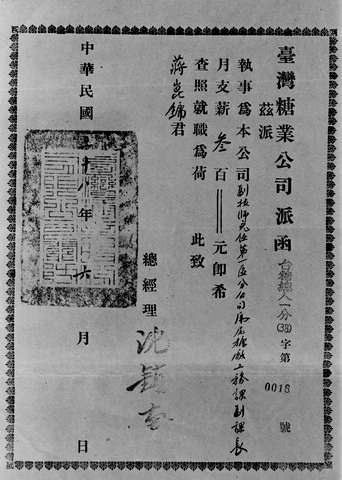 臺灣糖業公司派函 台糖總人一分(38)字第 0018 號
茲派
執事爲本公司副技師兼任第一區分公司虎尾糖廠工務課副課長
月支薪 叁百 元卽希
查照就職爲荷 此致
蔣崑 君
總經理 沈鎮南
中華民國三十八年 六 月 日